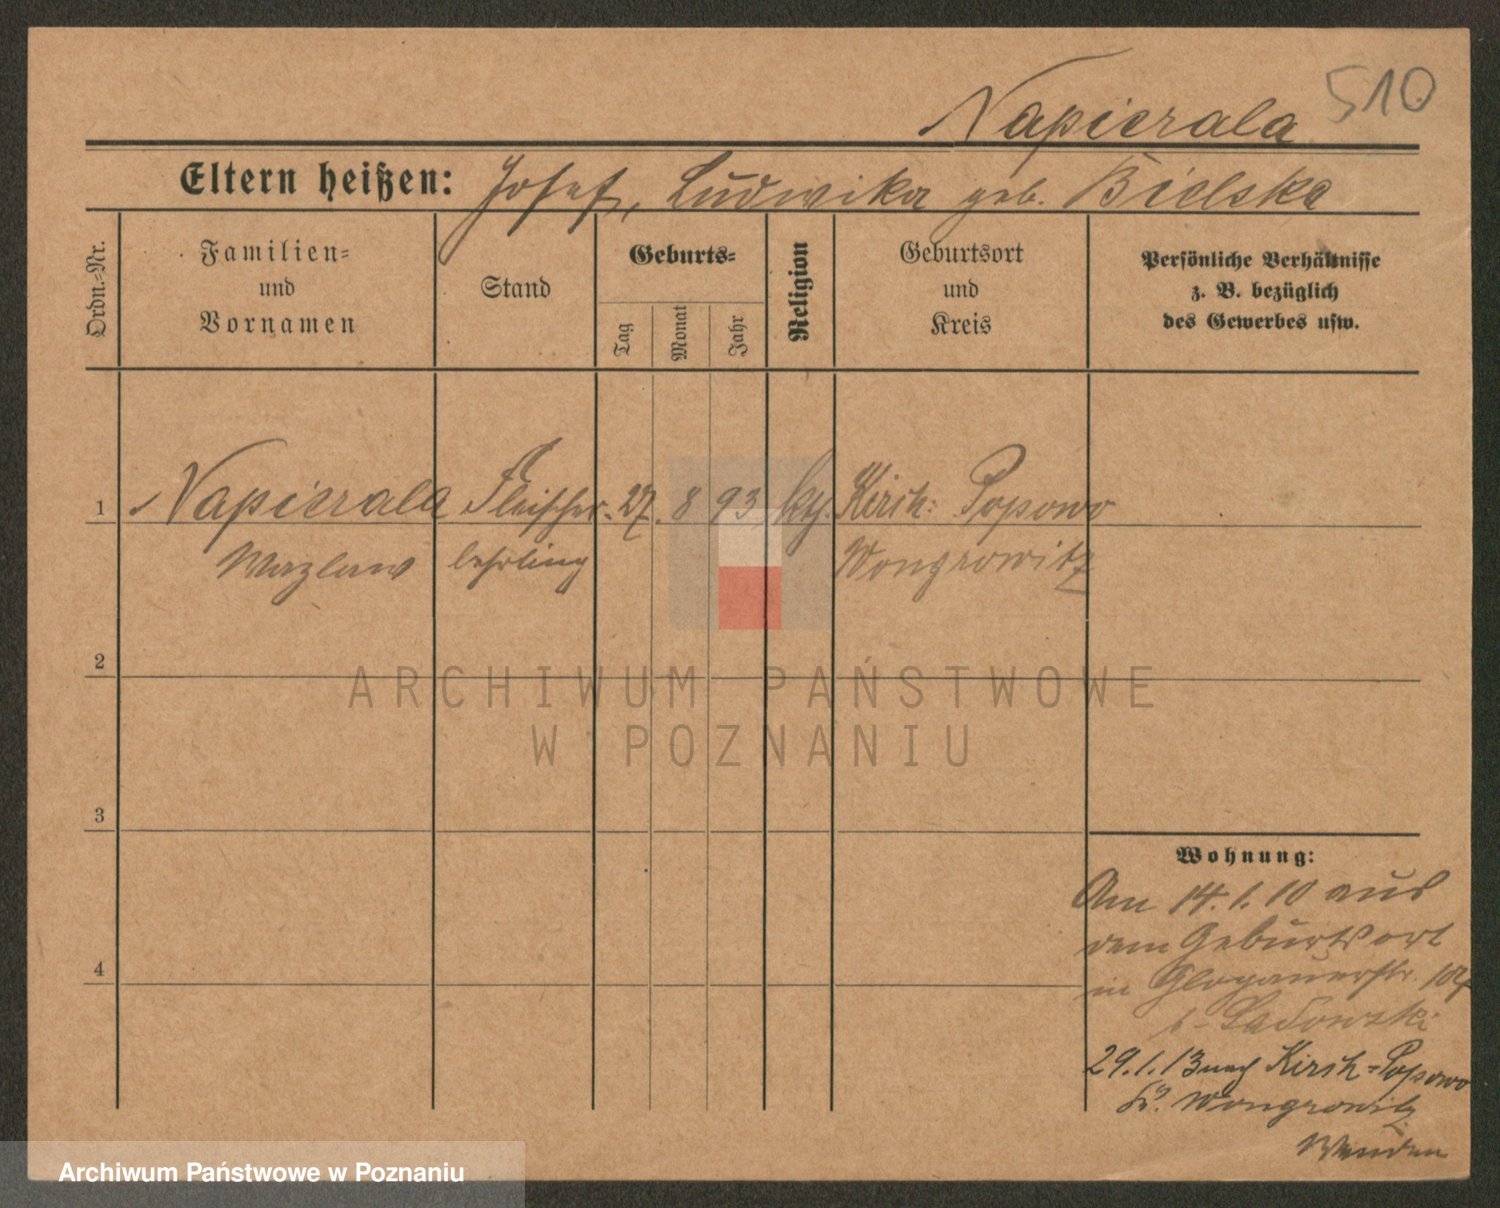 510
Napierala
Eltern heißen: Josef, Ludwika geb. Bielska
Ordn.-Nr.
Familien-
und
Vornamen
Stand
Geburts-
Tag
Monat
Jahr
Religion
Geburtsort
und
Kreis
Persönliche Verhältnisse
z. B. bezüglich
des Gewerbes usw.
1 Napierala Fleischer- 27. 8 93 kth. Kirch: Popowo
Wazlaw lehrling Wongrowitz
2
ARCHIWUM PAŃSTWOWE
W POZNANIU
3
4
Wohnung:
Am 14.1.10 aus
dem Geburtsort
in Glogauerstr. 107
b. Sadowski
29.1.13 nach Kirch-Popowo
Kr. Wongrowitz
Wenden
Archiwum Państwowe w Poznaniu